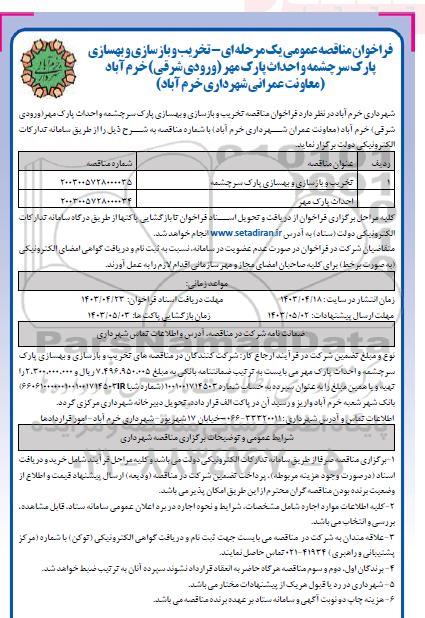 فراخوان مناقصه عمومی یک مرحله ای - تخریب و بازسازی و بهسازی
پارک سرچشمه و احداث پارک مهر (ورودی شرقی) خرم آباد
(معاونت عمرانی شهرداری خرم آباد)
شهرداری خرم آباد در نظر دارد فراخوان مناقصه تخریب و بازسازی و بهسازی پارک سرچشمه و احداث پارک مهر (ورودی
شرقی) خرم آباد (معاونت عمران شهرداری خرم آباد) با شماره مناقصه به شرح ذیل را از طریق سامانه تدارکات
الکترونیکی دولت برگزار نماید.
ردیف عنوان مناقصه شماره مناقصه
۱ تخریب و بازسازی و بهسازی پارک سرچشمه ۲۰۰۳۰۰۵۷۲۸۰۰۰۰۳۵
۲ احداث پارک مهر ۲۰۰۳۰۰۵۷۲۸۰۰۰۰۳۴
کلیه مراحل برگزاری فراخوان از دریافت و تحویل اسناد فراخوان تا بازگشایی پاکتها از طریق درگاه سامانه تدارکات
الکترونیکی دولت (ستاد) به آدرس www.setadiran.ir انجام خواهد شد.
متقاضیان شرکت در فراخوان در صورت عدم عضویت در سامانه، نسبت به ثبت نام و دریافت گواهی امضای الکترونیکی
(به صورت برخط) برای کلیه صاحبان امضای مجاز و مهر سازمانی اقدام لازم را به عمل آورند.
مواعد زمانی:
زمان انتشار در سایت: ۱۴۰۳/۰۴/۱۸ مهلت دریافت اسناد فراخوان: ۱۴۰۳/۰۴/۲۳
مهلت ارسال پیشنهادات: ۱۴۰۳/۰۵/۰۲ زمان بازگشایی پاکت ها: ۱۴۰۳/۰۵/۰۳
ضمانت نامه شرکت در مناقصه، آدرس و اطلاعات تماس شهرداری
نوع و مبلغ تضمین شرکت در فرآیند ارجاع کار: شرکت کنندگان در مناقصه های تخریب و بازسازی و بهسازی پارک
سرچشمه و احداث پارک مهر می بایست به ترتیب ضمانتنامه بانکی به مبلغ ۷.۴۹۶.۹۵۰.۰۰۵ ریال و ۲.۳۰۰.۰۰۰.۰۰۰ را
تهیه و یا همین مبلغ را به عنوان سپرده به حساب شماره ۱۰۰۱۰۰۱۷۱۴۵۰۳ (شماره شبا
بانک شهر شعبه خرم آباد واریز و رسید آن در پاکت الف قرار داده، تحویل دبیرخانه شهرداری مرکزی گردد.
اطلاعات تماس و آدرس شهرداری: ۳۳۳۲۰۰۱۱-۰۶۶-خیابان ۱۷ شهریور- شهرداری خرم آباد- امور قراردادها
شرایط عمومی و توضیحات برگزاری مناقصه شهرداری
۱- برگزاری مناقصه صرفا از طریق سامانه تدارکات الکترونیکی دولت می باشد و کلیه مراحل فرآیند شامل خرید و دریافت
اسناد (در صورت وجود هزینه مربوطه)، پرداخت تضمین شرکت در مناقصه (ودیعه) ارسال پیشنهاد قیمت و اطلاع از
وضعیت برنده بودن مناقصه گران محترم از این طریق امکان پذیر می باشد.
۲- کلیه اطلاعات موارد اجاره شامل مشخصات، شرایط و نحوه اجاره در برد اعلان عمومی سامانه ستاد، قابل مشاهده،
بررسی و انتخاب می باشد.
۳- علاقه مندان به شرکت در مناقصه می بایست جهت ثبت نام و دریافت گواهی الکترونیکی (توکن) با شماره (مرکز
پشتیبانی و راهبری) ۴۱۹۳۴-۰۲۱ تماس حاصل نمایند.
۴- برندگان اول، دوم و سوم مناقصه هرگاه حاضر به انعقاد قرارداد نشوند سپرده آنان به ترتیب ضبط خواهد شد.
۵- شهرداری در رد یا قبول هر یک از پیشنهادات مختار می باشد.
۶- هزینه چاپ دو نوبت آگهی و سامانه ستاد بر عهده برنده مناقصه می باشد.